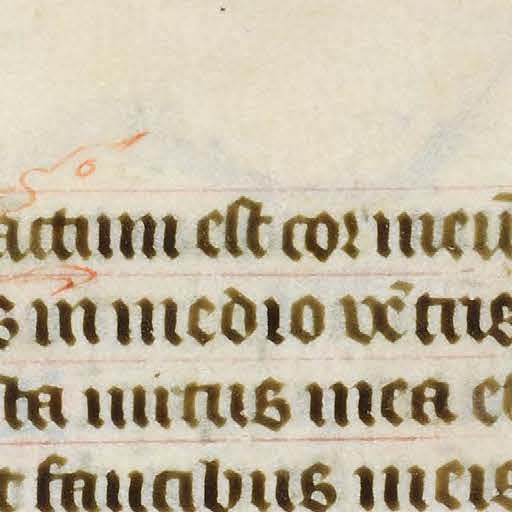 actum est cor meū
s in medio vētris
sta uirtus mea et
t faucibus meis